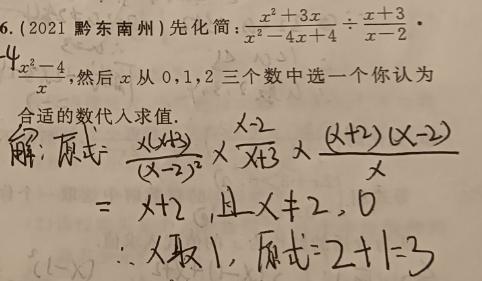 6.(2021 黔东南州)先化简: (x²+3x)/(x²-4x+4) ÷ (x+3)/(x-2) ·
-4 (x²-4)/x ,然后 x 从 0,1,2 三个数中选一个你认为
合适的数代入求值.
解: 原式= x(x+3)/(x-2)² × (x-2)/(x+3) × (x+2)(x-2)/x
= x+2 ,且 x≠2, 0
∴ x取1, 原式=2+1=3